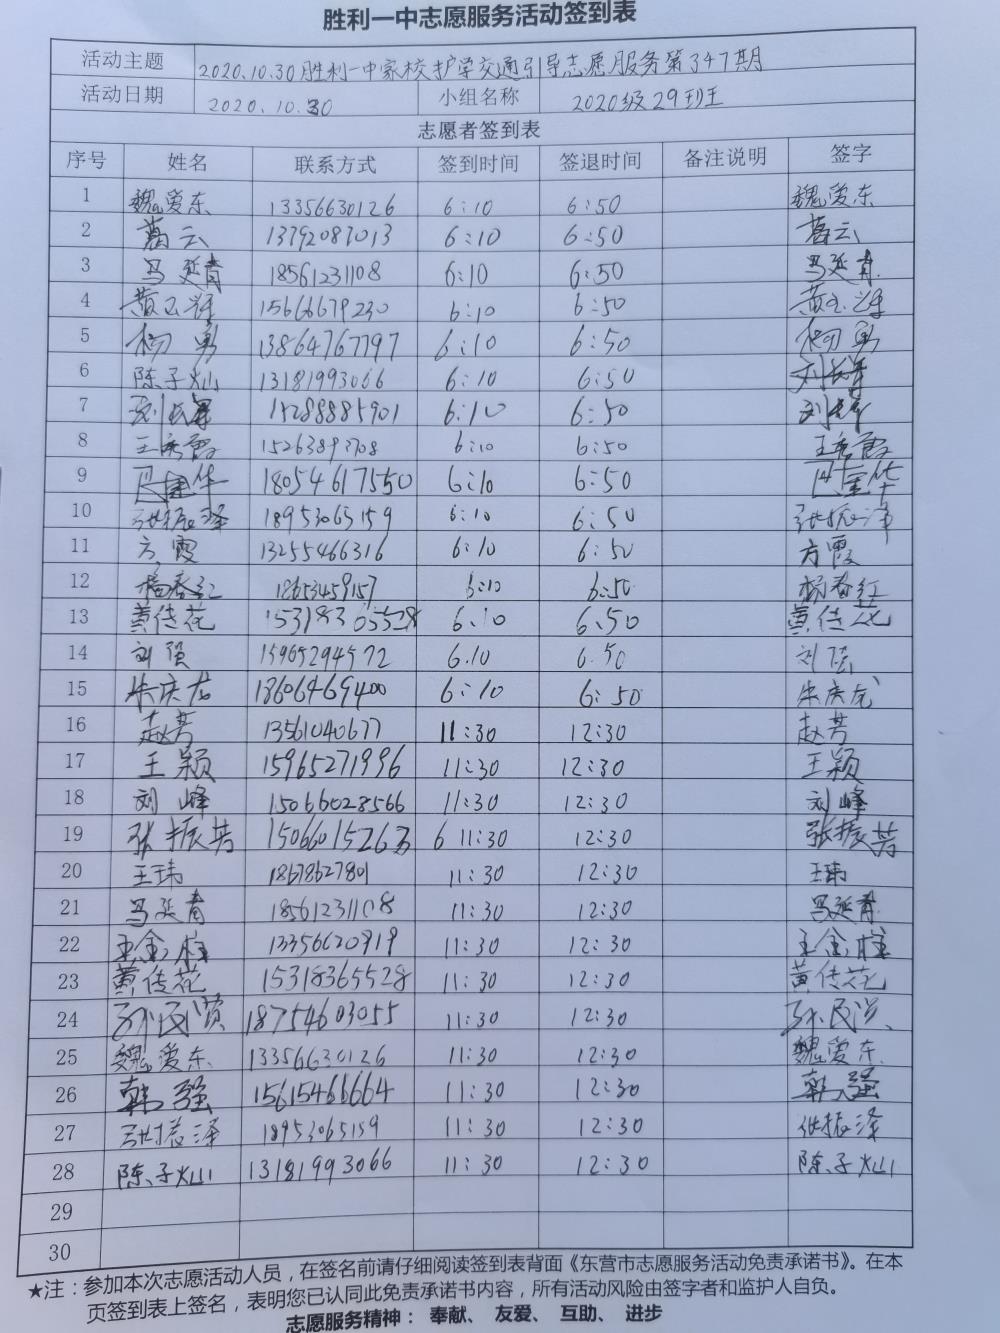 胜利一中志愿服务活动签到表
活动主题 2020.10.30胜利一中家校护学交通引导志愿服务第347期
活动日期 2020.10.30 小组名称 2020级29班
志愿者签到表
序号 姓名 联系方式 签到时间 签退时间 备注说明 签字
1 魏爱东 13356630126 6:10 6:50 魏爱东
2 葛云 13792087013 6:10 6:50 葛云
3 马延青 18561231108 6:10 6:50 马延青
4 黄玉辉 15666679230 6:10 6:50 黄玉辉
5 杨勇 13864767797 6:10 6:50 杨勇
6 陈子灿 13181993066 6:10 6:50
7 15288885901 6:10 6:50
8 王秀霞 15263892708 6:10 6:50 王秀霞
9 18054617550 6:10 6:50
10 张振泽 18953065159 6:10 6:50 张振泽
11 方霞 13255466316 6:10 6:50 方霞
12 杨春红 18653459157 6:10 6:50 杨春红
13 黄传花 15318365528 6.10 6.50 黄传花
14 刘强 15965294572 6.10 6.50 刘强
15 朱庆龙 18606469400 6:10 6:50 朱庆龙
16 赵芳 13561040677 11:30 12:30 赵芳
17 王颖 15965271996 11:30 12:30 王颖
18 刘峰 15066028566 11:30 12:30 刘峰
19 张振芳 15066015263 6 11:30 12:30 张振芳
20 王玮 18678627801 11:30 12:30 王玮
21 马延青 18561231108 11:30 12:30 马延青
22 王金柱 13356620919 11:30 12:30 王金柱
23 黄传花 15318365528 11:30 12:30 黄传花
24 18754603055 11:30 12:30
25 魏爱东 13356630126 11:30 12:30 魏爱东
26 韩强 15615466664 11:30 12:30 韩强
27 张振泽 18953065159 11:30 12:30 张振泽
28 陈子灿 13181993066 11:30 12:30 陈子灿
29
30
★注：参加本次志愿活动人员，在签名前请仔细阅读签到表背面《东营市志愿服务活动免责承诺书》。在本
页签到表上签名，表明您已认同此免责承诺书内容，所有活动风险由签字者和监护人自负。
志愿服务精神： 奉献、 友爱、 互助、 进步